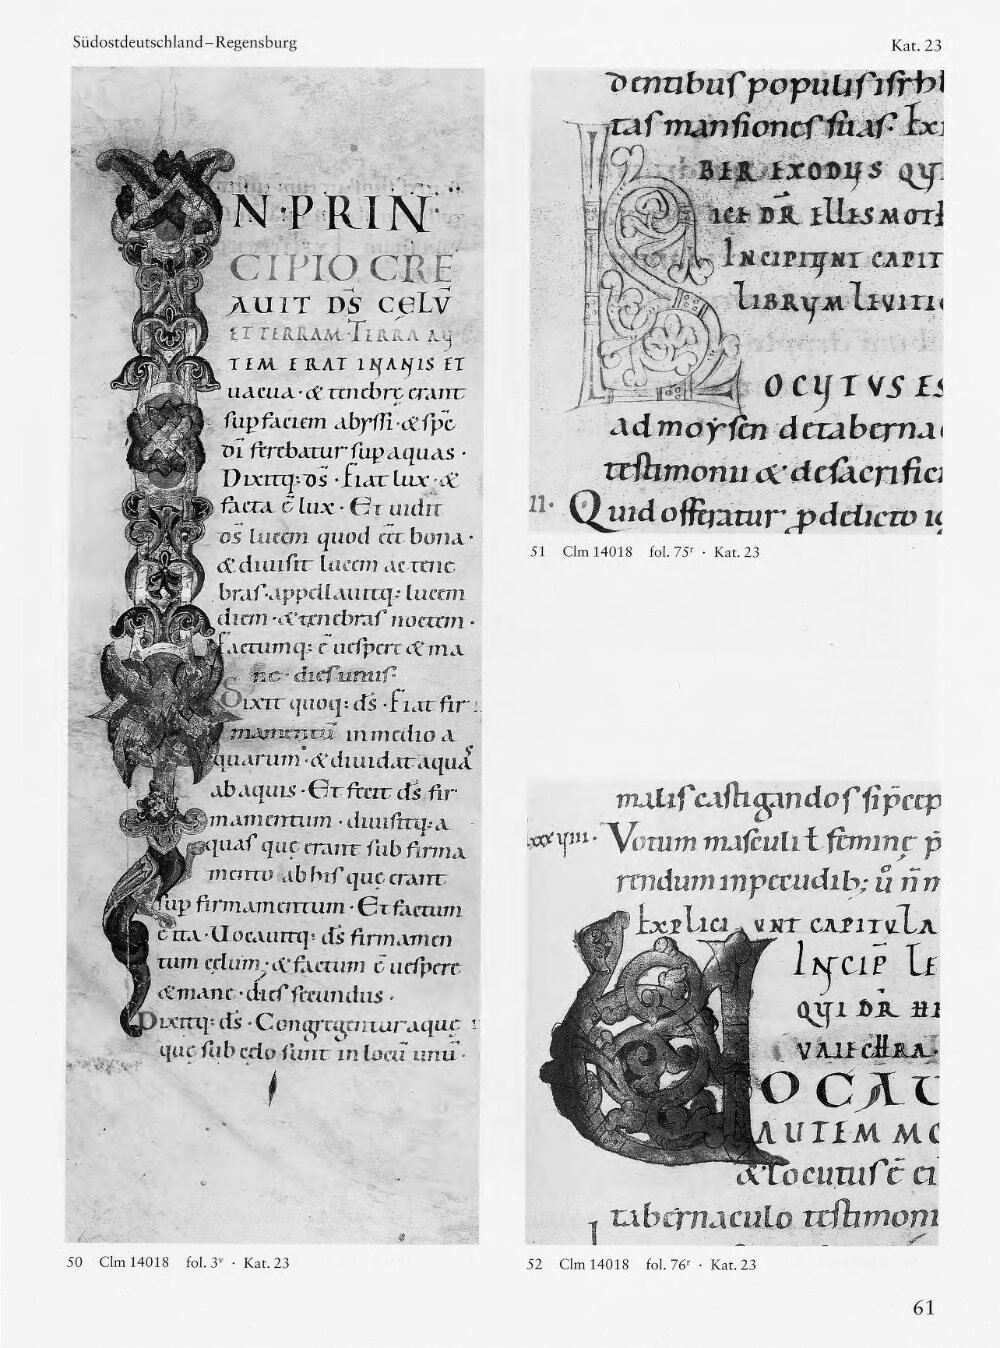 Südostdeutschland–Regensburg
Kat. 23
N·PRIN
CIPIO CRE
AUIT DS̄ CĘLV̄
ET TERRAM·TERRA AŲ
TEM ERAT INANIS ET
uacua·& tenebrę erant
sup faciem abyssi·& sp̄c
dī ferebatur sup aquas·
Dixitq: ds̄·Fiat lux·&
facta ē lux·Et uidit
ds̄ lucem quod eēt bona·
& diuisit lucem ac tene
bras·appellauitq: lucem
diem·& tenebras noctem·
factumq: ē uespere & ma
ne·dies unus·
Dixit quoq: ds̄·Fiat fir
mamentū in medio a
quarum·& diuidat aqua
ab aquis·Et fecit ds̄ fir
mamentum·diuisitq: a
quas quę erant sub firma
mento ab his quę erant
sup firmamentum·Et factum
ē ita·Uocauitq: ds̄ firmamen
tum cęlum;& factum ē uespere
& mane·dies secundus·
Dixitq: ds̄·Congregentur aquę
quę sub cęlo sunt in locū unū·
50 Clm 14018 fol. 3ᵛ · Kat. 23
dentibus populis isrhl
tas mansiones suas· Ex
BER EXODUS QU
ICE DR̄ ELLESMOTH
INCIPIUNT CAPIT
LIBRUM LEUITIC
L OCUTVS ES
ad moysen de taberna
testimonii & de sacrifici
II· Quid offeratur p delicto ig
51 Clm 14018 fol. 75ʳ · Kat. 23
malis castigandos si p̄cep
Lxxxviiii· Votum masculi ł feminę p̄
rendum in pecudib;
EXPLICIUNT CAPITULA
INCIP̄ LE
QUI DR̄
VAIECHRA·
V OCAU
AUTEM MO
& locutus ē ei
tabernaculo testimoni
52 Clm 14018 fol. 76ʳ · Kat. 23
61